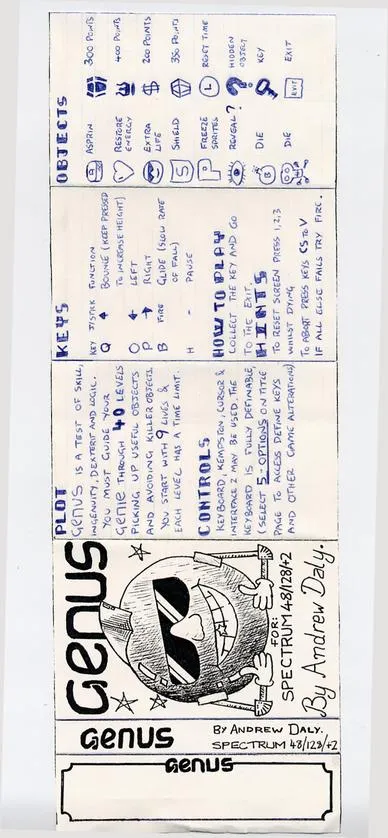 GENUS
GENUS
BY ANDREW DALY.
SPECTRUM 48/128/+2
GENUS
FOR:
SPECTRUM 48/128/+2
By Andrew Daly.
PLOT
GENUS IS A TEST OF SKILL,
INGENUITY, DEXTERIT AND LOGIC.
YOU MUST GUIDE YOUR
GENIE THROUGH 40 LEVELS
PICKING UP USEFUL OBJECTS
AND AVOIDING KILLER OBJECTS.
YOU START WITH 9 LIVES &
EACH LEVEL HAS A TIME LIMIT.
CONTROLS
KEYBOARD, KEMPSTON, CURSOR &
INTERFACE 2 MAY BE USED. THE
KEYBOARD IS FULLY DEFINABLE,
(SELECT 5-OPTIONS ON TITLE
PAGE TO ACCESS DEFINE KEYS
AND OTHER GAME ALTERATIONS)
KEYS
KEY JYSTK FUNCTION
Q BOUNCE (KEEP PRESSED
TO INCREASE HEIGHT)
O LEFT
P RIGHT
B FIRE GLIDE (SLOW RATE
OF FALL)
H - PAUSE
HOW TO PLAY
COLLECT THE KEY AND GO
TO THE EXIT.
HINTS
TO RESET SCREEN PRESS 1,2,3
WHILST DYING
TO ABORT PRESS KEYS CS TO V
IF ALL ELSE FAILS TRY FIRE.
OBJECTS
ASPRIN 300 POINTS
RESTORE
ENERGY 400 POINTS
EXTRA
LIFE $ 200 POINTS
S SHIELD 350 POINTS
P FREEZE
SPRITES L RESET TIME
REVEAL ? ? HIDDEN
OBJECT
B DIE KEY
DIE EXIT EXIT